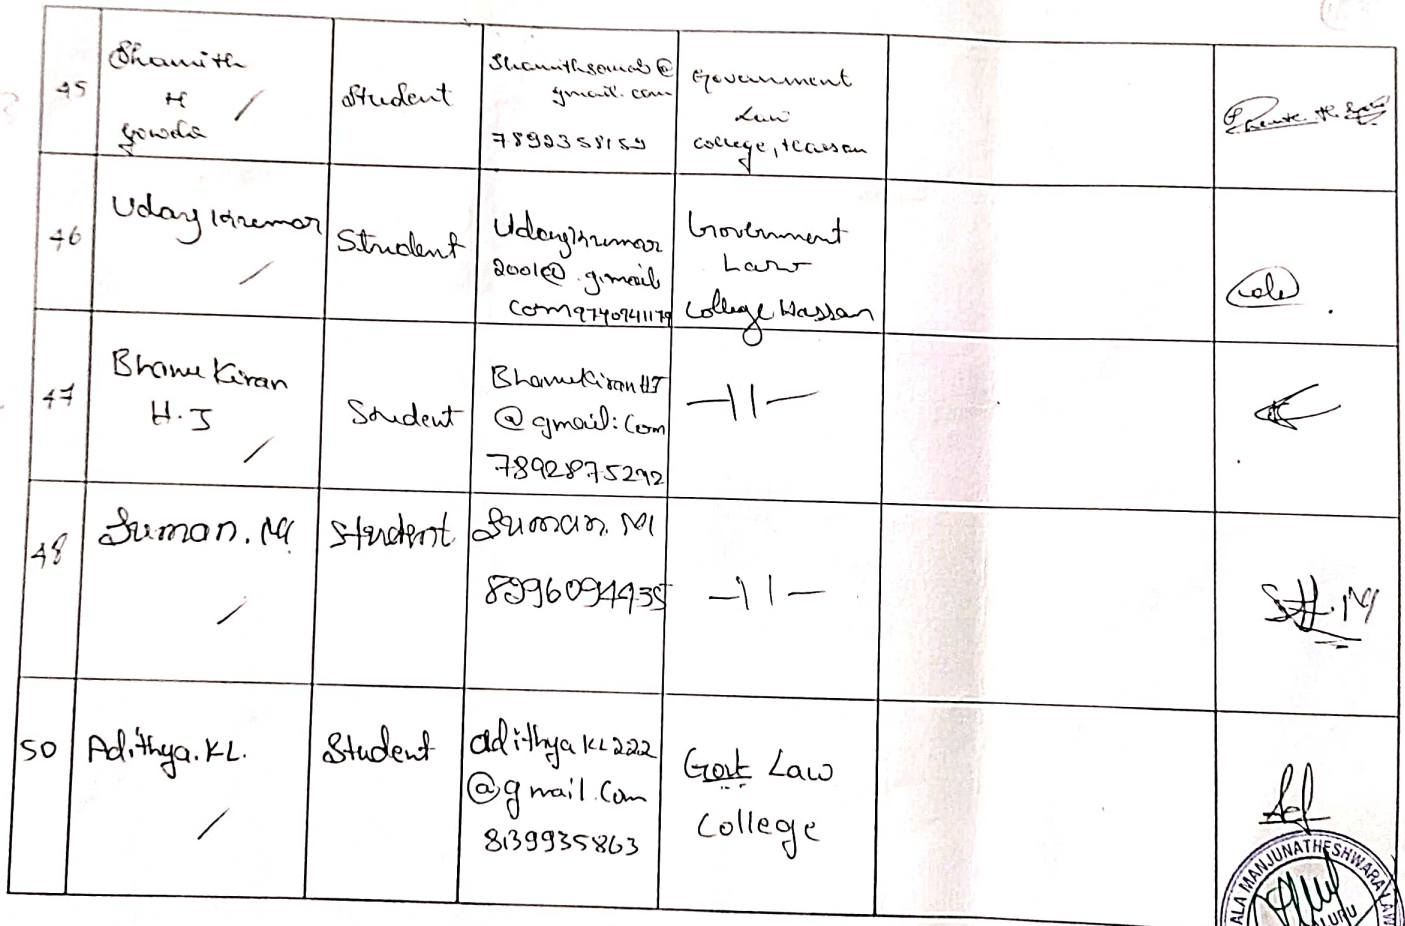 45
Shamith
H
Gowda
Student
gmail.com
7899358159
Government
Law
College, Hassan
46
Uday Kumar
Student
Udaykumar
2001@.gmail
com 9740941179
Government
Law
College Hassan
47
Bhanu Kiran
H.J
Student
BhanukiranHJ
@gmail:com
7892875292
-11-
48
Suman.M
Student
Suman.M
8996094935
-11-
S.M
50
Adithya.KL.
Student
adithyakl222
@gmail.com
8139935863
Govt Law
College
ALA MANJUNATHESHWARA LAW
ALURU